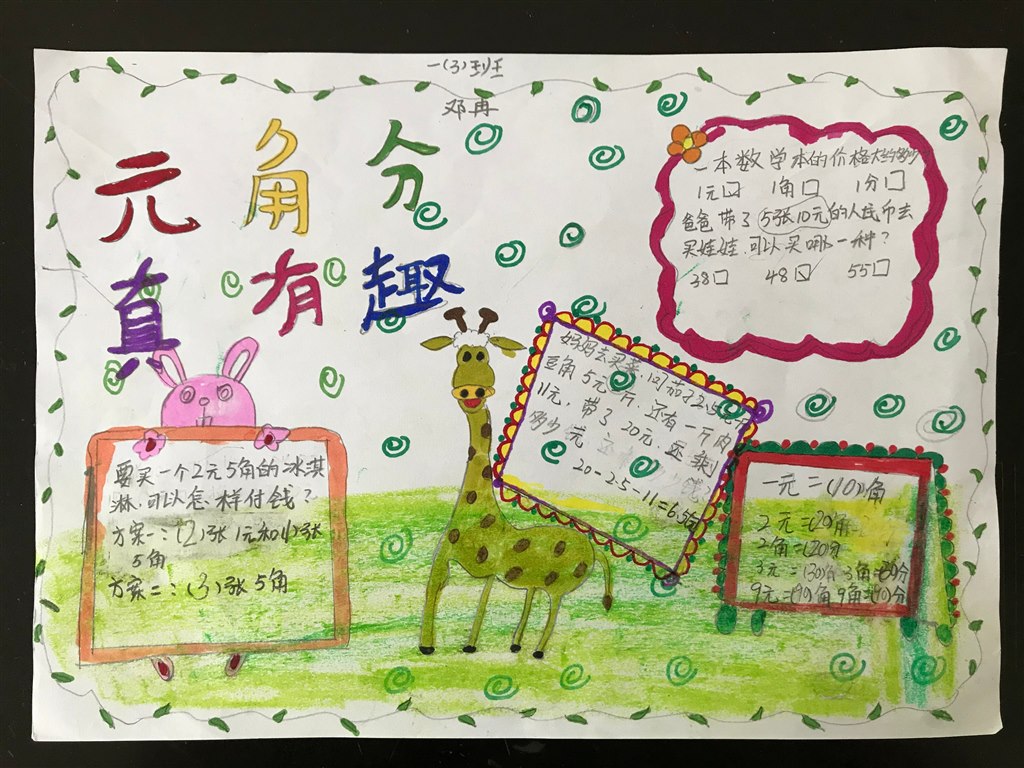 一(3)班
邓冉
元角分
真有趣
一本数学本的价格大约多少
1元□ 1角□ 1分□
爸爸带了5张10元的人民币去
买娃娃.可以买哪一种?
38□ 48☑ 55□
妈妈去买菜.
豆角5元一斤.还有一斤肉
11元.带了20元.还剩
多少元
20-2.5-11=6.5
要买一个2元5角的冰淇
淋.可以怎样付钱?
方案一:(2)张1元和(1)张
5角
方案二:(3)张5角
一元=(10)角
2元=(20)角
2角=(20)分
3元=(30)角 3角=(30)分
9元=(90)角 9角=(90)分